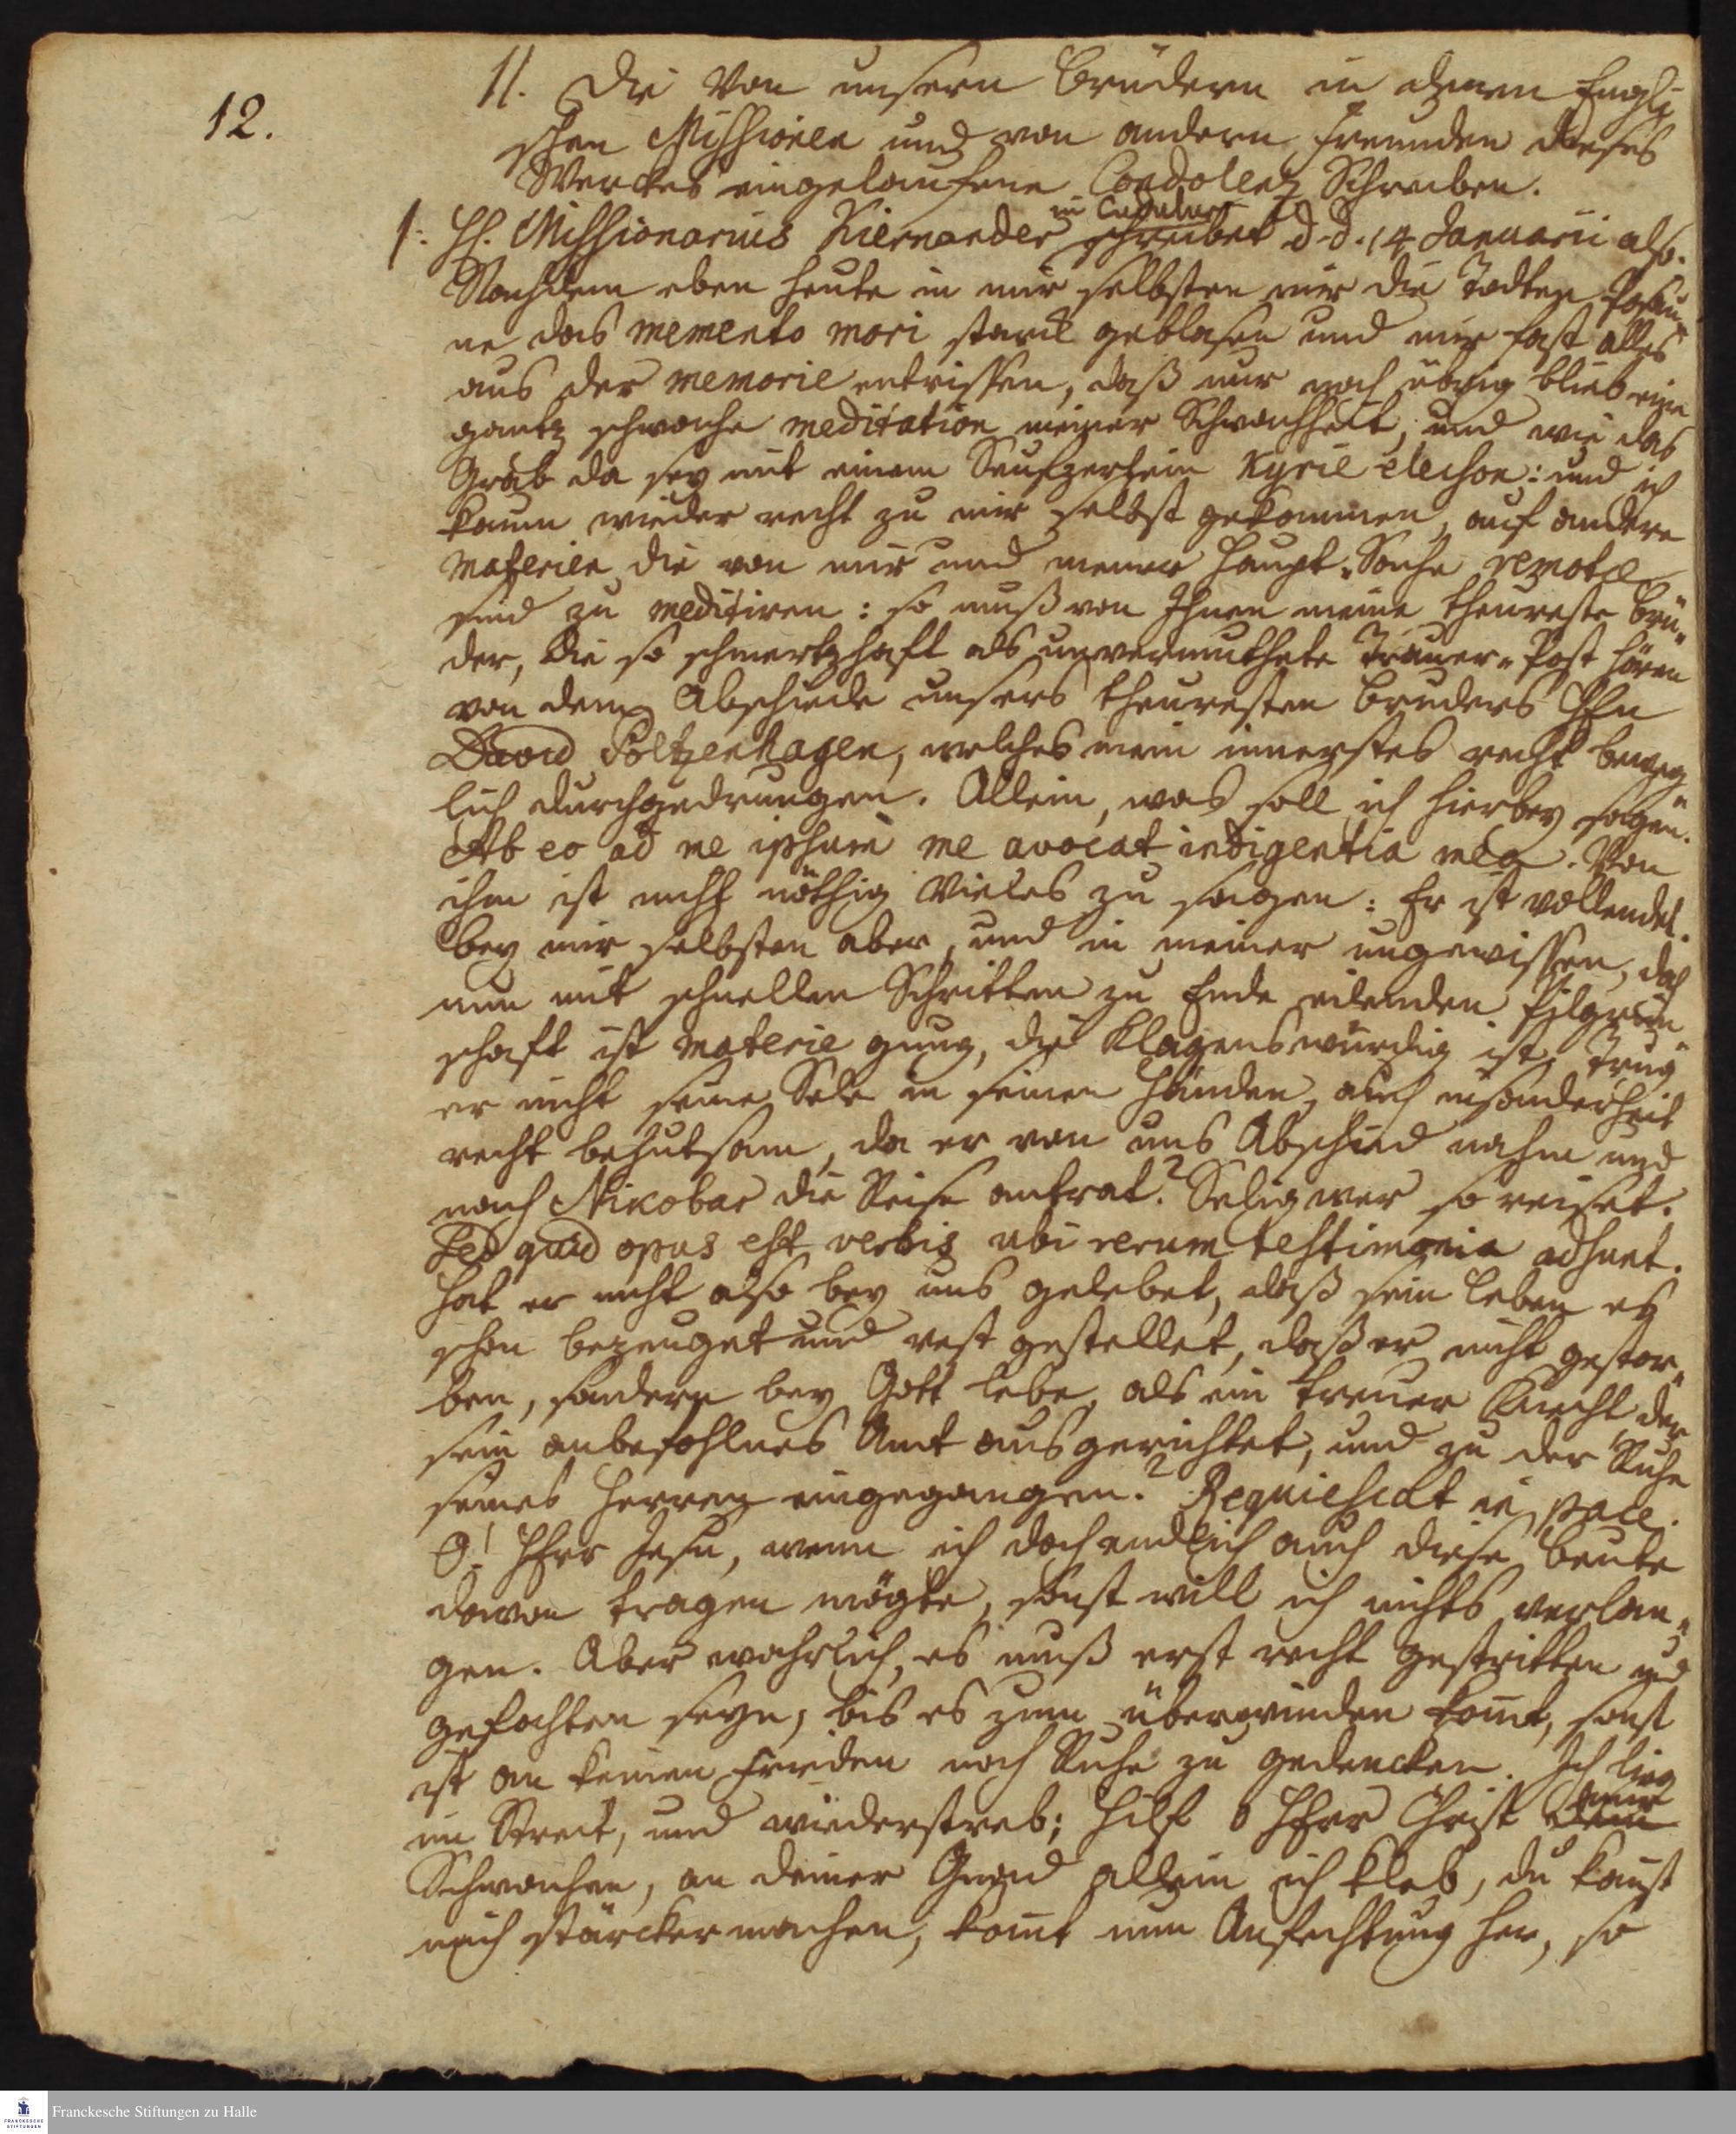 12.
II. Die von unsern Brüdern in denen Engli-
schen Missionen und von andern Freunden dieses
Werckes eingelaufene Condolentz Schreiben.
1. H. Missionarius Kiernander in Cudulur schreibet d. d. 14 Januarii also.
Nachdem eben heute in mir selbsten mir die Todten Posau-
ne das memento mori starck geblasen und mir fast alles
aus der memorie entrissen, daß nur noch übrig blieb eine
gantz schwache meditation meiner Schwachheit, und wie das
Grab da sey mit einem Seufzerlein Kyrie eleison: und ich
kaum wieder recht zu mir selbst gekommen, auf andere
Materien die von mir und meiner Haupt-Sache remot
sind zu meditiren: so muß von Ihnen meine theureste Brü-
der, die so schmertzhaft als unvermuthete Trauer-Post hören
von dem Abschiede unsers theuresten Bruders Hrn
David Poltzenhagen, welches mein innerstes recht beweg-
lich durchgedrungen. Allein, was soll ich hierbey sagen.
Ab eo ad me ipsum me avocat indigentia mea. Von
ihm ist nicht nöthig Vieles zu sagen: Er ist vollendet.
bey mir selbsten aber, und in meiner ungewissen, doch
nun mit schnellen Schritten zu Ende eilenden Pilgrim-
schaft ist Materie gnug, die Klagenswürdig ist. Trug
er nicht seine Sele in seinen Händen, auch insonderheit
recht behutsam, da er von uns Abschied nahm und
nach Nikobar die Reise antrat? Selig wer so reiset.
Sed quid opus est verbis ubi rerum testimonia adsunt.
Hat er nicht also bey uns gelebet, daß sein Leben es
schon bezeuget und vest gestellet, daß er nicht gestor-
ben, sondern bey Gott lebe, als ein treuer Knecht der
sein anbefohlnes Amt ausgerichtet, und zu der Ruhe
seines Herren eingegangen? Requiescat in pace.
O! HErr Jesu, wenn ich doch endlich auch diese Beute
davon tragen mögte, sonst will ich nichts verlan-
gen. Aber wahrlich, es muß erst recht gestritten und
gefochten seyn, bis es zum überwinden komt, sonst
ist an keinen Frieden noch Ruhe zu gedencken. Ich lieg
im Streit, und wiederstreb; hilf o HErr Christ dem mir
Schwachen, an deiner Gnad allein ich kleb, du kanst
mich stärcker machen, komt nun Anfechtung her, so
Franckesche Stiftungen zu Halle
FRANCKESCHE
STIFTUNGEN